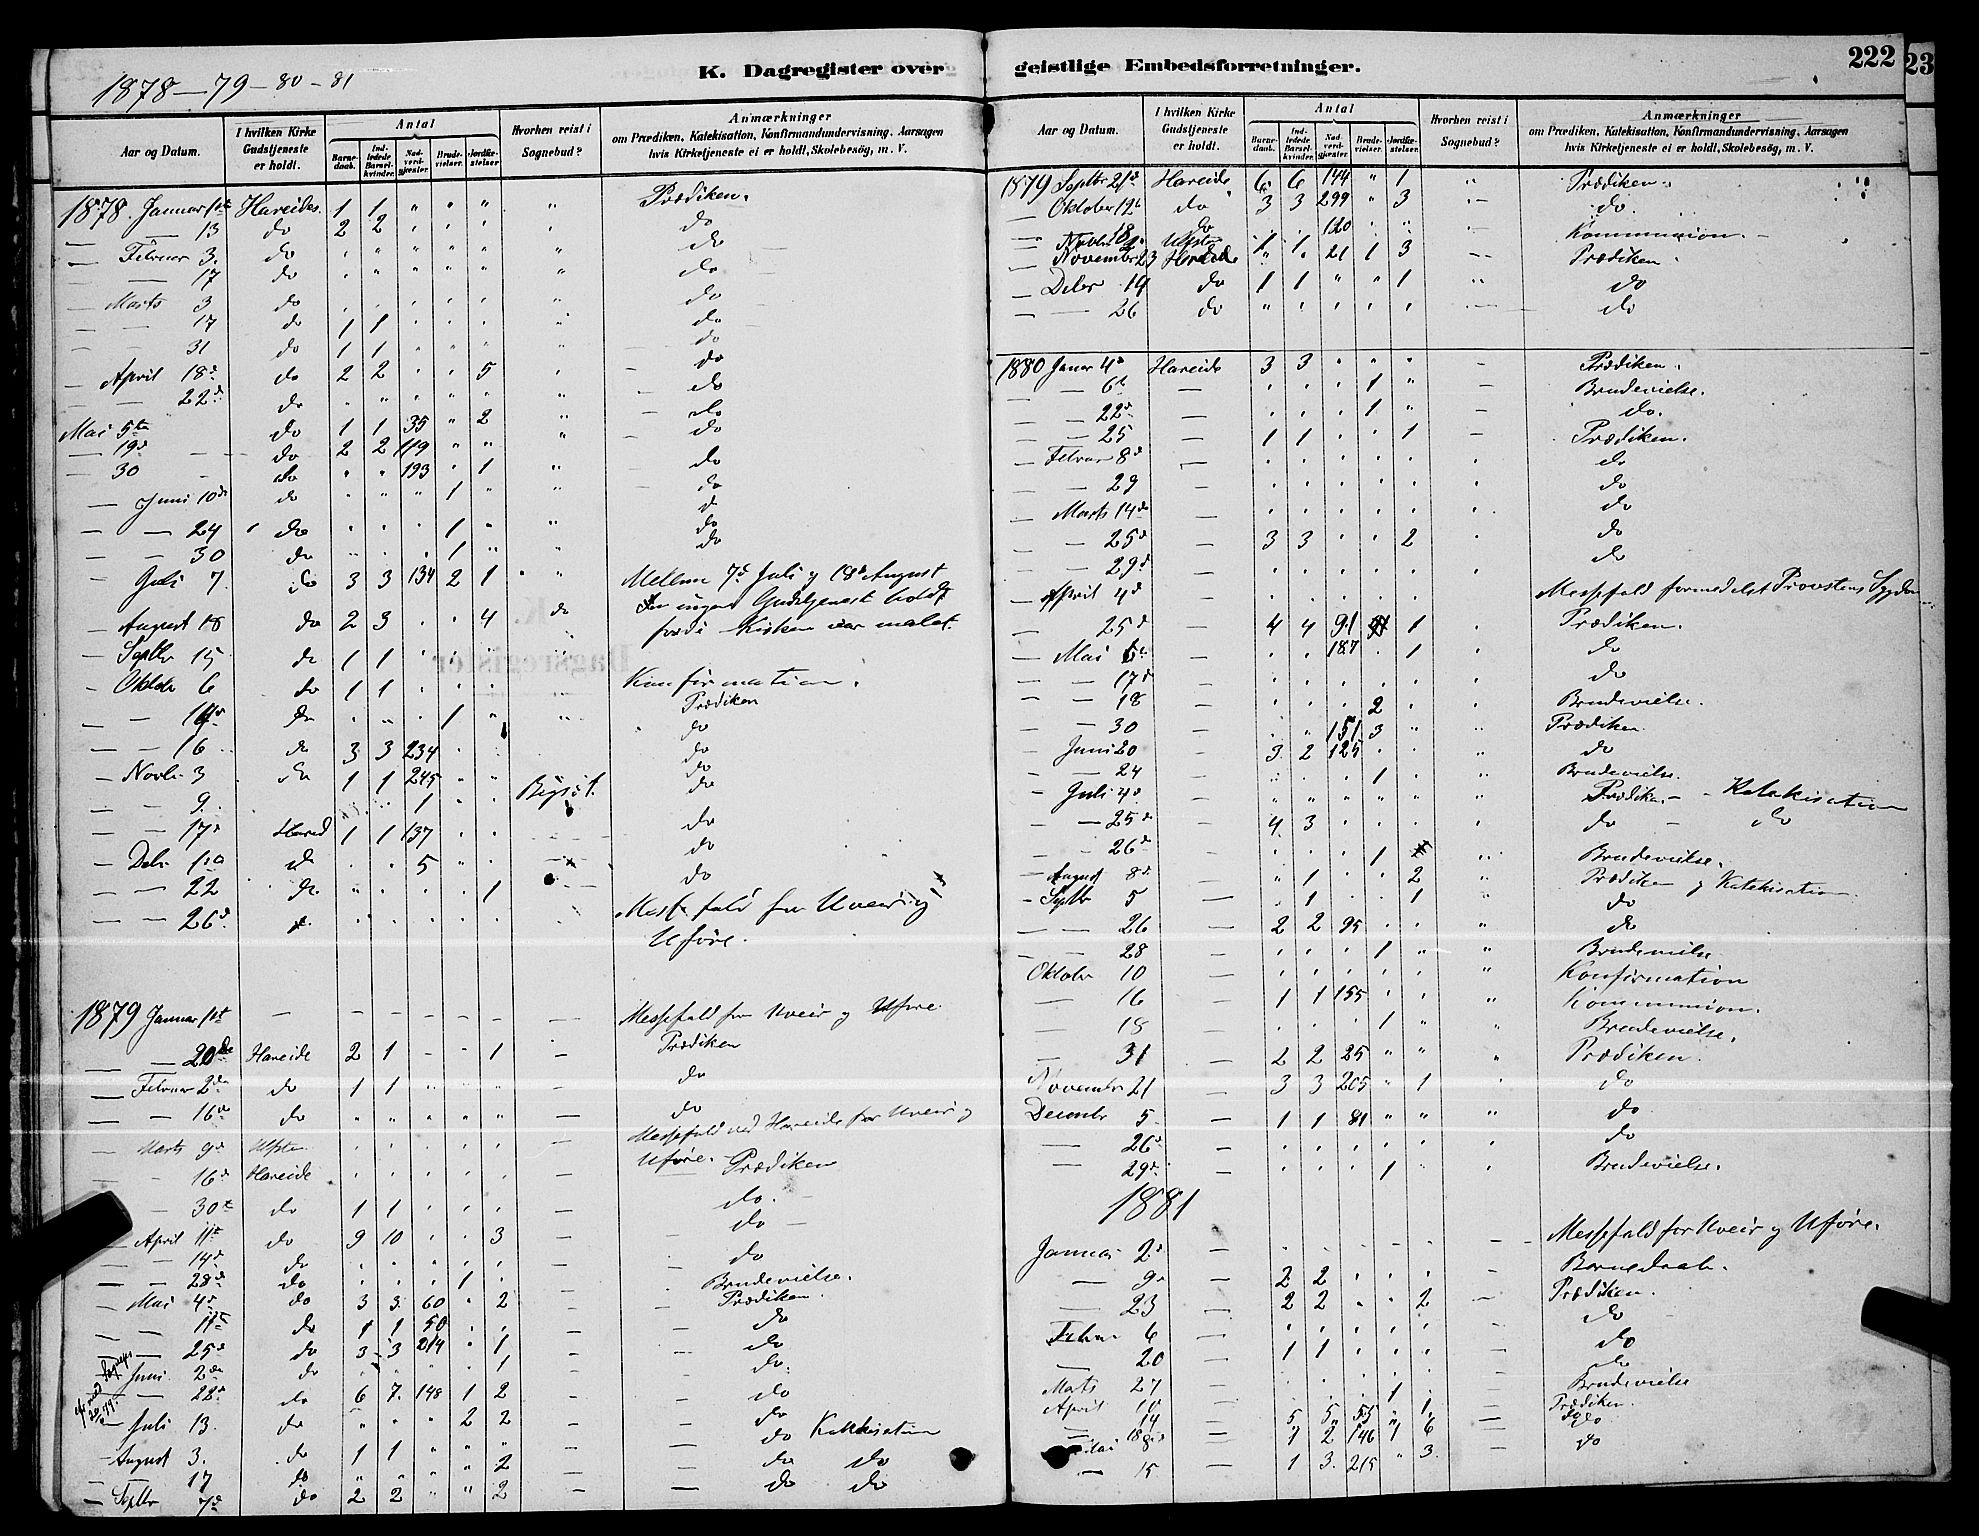 1878-79-80-81
K. Dagregister over
Aar og Datum. I hvilken Kirke Gudstjeneste er holdt. Antal Barnedaab. Indledede Barselkvinder. Nadverdgjester. Brudevielser. Jordfæstelser. Hvorhen reist i Sognebud? Anmærkninger om Prædiken, Katekisation, Konfirmandundervisning, Aarsagen hvis Kirketjeneste ei er holdt, Skolebesög, m. V.
1878. Januar 1ste Hareides. 1 1 " " " " Prædiken.
— 13 do 2 2 " " " " do
— Februar 3. do " " " " " " do
— 17 do " " " " " " do
— Marts 3 do " " " " " " do
— — 17 do 1 1 " " " " do
— 31 do 1 1 " " " " do
— April 18de do 2 2 " " 5 " do
— — 22de do " " " " " " do
Mai 5te do 1 1 35 " 2 " do
— 19de do 2 2 119 " " " do
— 30 do " " 193 " 1 " do
— Juni 10de do " " " 1 " " do
— — 24 do " " " 1 " " do
— — 30 do " " " 1 " " do
— Juli 7. do 3 3 134 2 1 " Mellem 7de Juli og 18de August
er ingen Gudstjeneste holdt
— August 18 do 2 3 " " 4 do fordi Kirken var malet.
— Septbr 15 do 1 1 " " " "
— Oktobr 6 do 1 1 " " " " Konfirmation.
— — 14de do " " " 1 " " Prædiken
— — 16 do 3 3 234 " " do
— Novbr 3 do 1 1 245 " " do
— — 9. " " 1 " " Bigset. do
— — 17de Hareid 1 1 137 " " do
— Debr 1ste do " " 5 " " do
— — 22 do " " " " 1 do
— — 26de do " " " " " Messefald for Uveir og
Uföre.
1879 Januar 1ste — — — — — — — Messefald for Uveir og Uföre
— 20de Hareide 2 1 — — 1 — Prædiken
— Februar 2de do 1 1 " " " — do
— — 16de do " " " " " — do
— Marts 9de Ulsten " " " " " — Messefald ved Hareide for Uveir og
Uföre. Prædiken
— 16de Hareide " " " " " —
— 30te do 1 1 " " " — do.
— April 11te do 9 10 " " 3 — do
— — 14de do " " " " " — do
— — 28de do " " " 1 " — Brudevielse.
— Mai 4de do 3 3 60 " 2 — Prædiken.
— — 11te do 1 1 50 " " — do
— — 25de do 3 3 214 " 1 — do
— Juni 2de do " " " " 1 — do.
— — 22de do 6 7 148 1 2 — do
— Juli 13. do " " " 2 2 — do
do Katekisation
— August 3. do 1 1 " " " — do do
— 17 do " " " " 2
— Septbr 7de do 2 2 " " 2 — do do
geistlige Embedsforretninger.
222
23
Aar og Datum. I hvilken Kirke Gudstjeneste er holdt. Antal Barnedaab. Indledede Barselkvinder. Nadverdgjester. Brudevielser. Jordfæstelser. Hvorhen reist i Sognebud? Anmærkninger om Prædiken, Katekisation, Konfirmandundervisning, Aarsagen hvis Kirketjeneste ei er holdt, Skolebesög, m. V.
1879 Septbr 21de Hareide 6 6 144 " 1 " Prædiken.
— Oktober 12te do 3 3 299 " 3 do.
— 18 do 120 Kommunion.
— Novbr 2 Ulsten 1 1
— Novembr 23 Hareide " " 21 1 3 Prædiken
— Debr 14 do 1 1 " " 1 do
— — 26 do " " " " " do
1880 Januar 4de Hareide 3 3 " " " — Prædiken.
— 6te — " " " 1 " — Brudevielse.
— — 22de — " " " 1 " — do.
— — 25 — 1 1 " " 1 — Prædiken.
— Februar 8de — " " " " " do
— — 29 — " " " " " do
— Marts 14de — " " " " " do
— — 25de — 3 3 " " 2 do
— — 29de — " " " " " do
— April 4de — " " " " " Messefald formedelst Provstens Sygdom
— 25de — 4 4 91 1 Prædiken.
— Mai 6te — " " 187 " 1 do
— — 17de — " " " " " do
— — 18 — " " " 2 " Brudevielse.
— — 30 — " " 151 3 " Prædiken
— Juni 20 — 3 2 125 " " do
— — 24 — " " " 1 " Brudevielse.
— Juli 4de — " " " " " Prædiken — Katekisation
— — 25de — 4 3 " " " do — do
— — 26de — " " " 1 Brudevielse.
— August 8de — " 1 " " 2 " Prædiken og Katekisation
— Septbr 5 — " 1 " " 1 " do
— — 26 — 2 2 95 " " " do
— — 28 — " " " 1 " " Brudevielse
Oktober 10 — " " " " " " Konfirmation
— 16 — 1 1 155 " " " Kommunion.
— 18 — " " " 1 " " Brudevielse.
— 31 — 2 2 25 " " " Prædiken.
November 21 — 3 3 205 " 1 do
Decembr 5 — 1 1 81 " " " do
— 26de — " " " " " do
— 29de — " " " 1 " Brudevielse.
1881
Januar 2de — " " " " " — Messefald for Uveir og Uföre.
— 9de — 2 2 " " " — Barnedaab.
— 23 — 2 2 " " 2 — Prædiken.
Febr 6 — " " " " " do
— 20 — 1 1 " " " do
Marts 27 — " " " " " do
April 10 — " " " 1 " Brudevielse
— 14 — 5 5 55 " 1 — Prædiken.
— 18 — 1 2 146 1 6 — do
Mai
— 15 — 1 3 215 " 3 — do